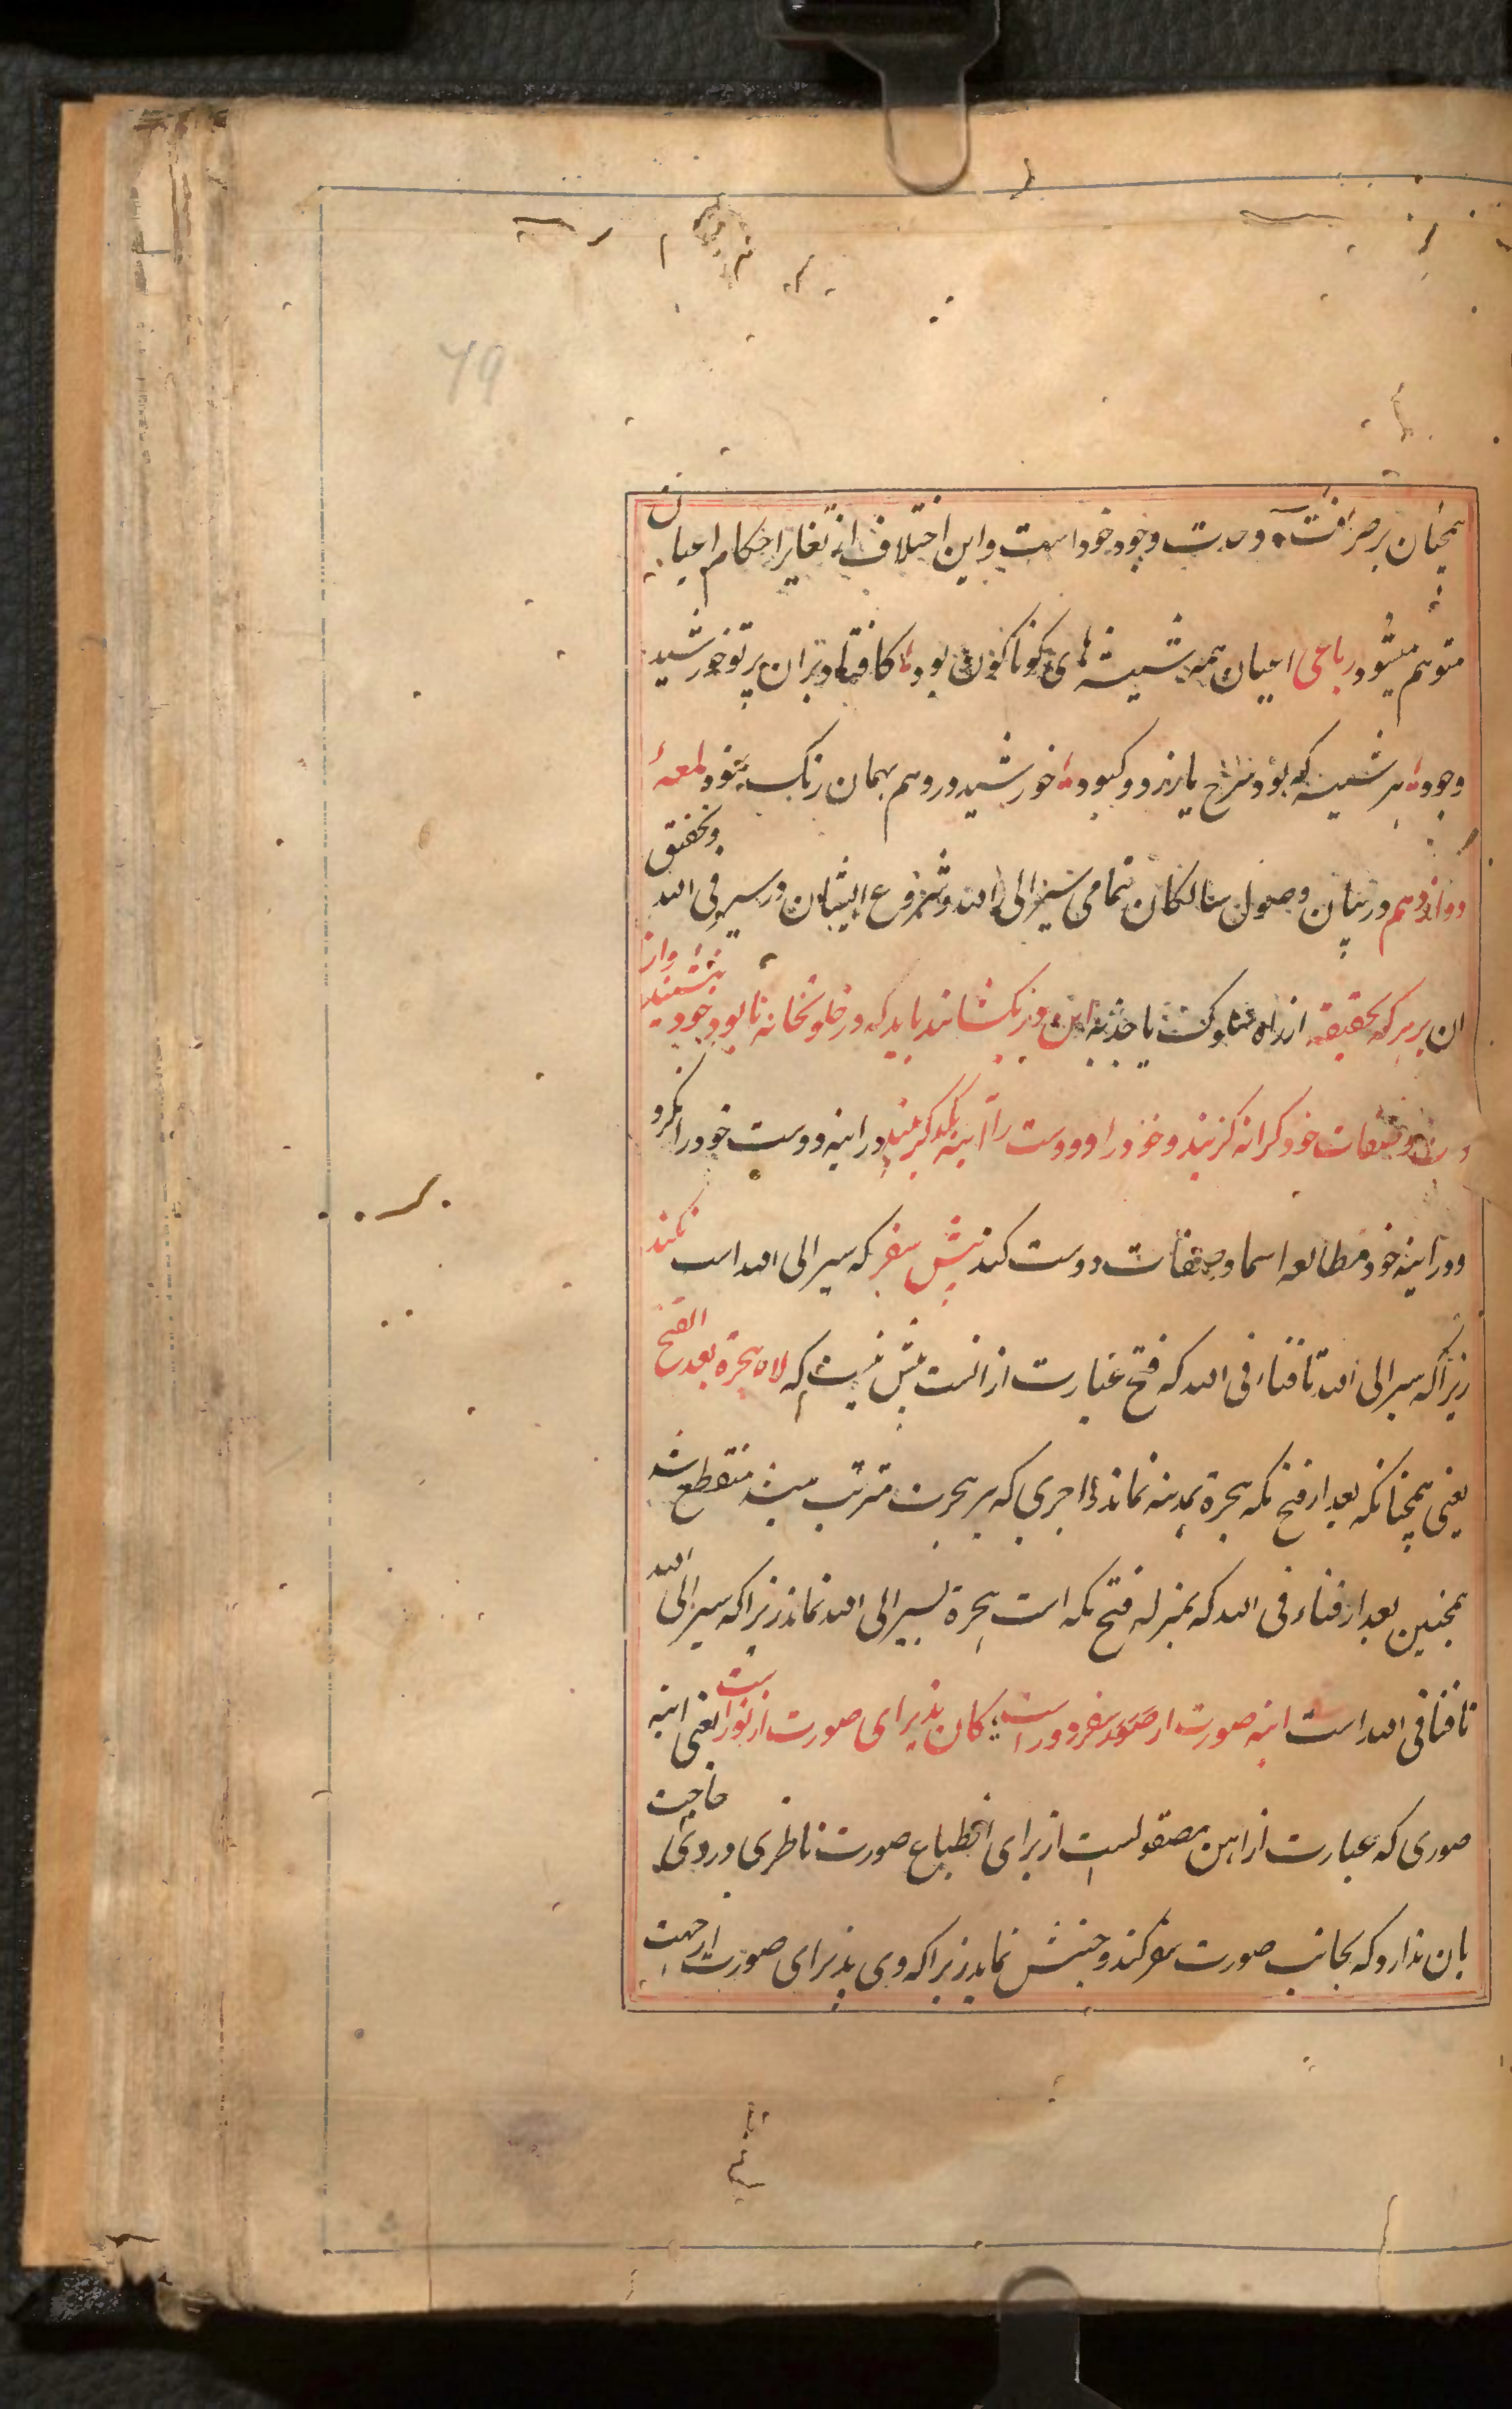 79
همچنان بر صرافت وحدت وجود خود است و این اختلاف از تغایر احکام اعیان
متوهم میشود رباعی اعیان همه شیشه های کوناکون بود کافتاد بر ان پرتو خورشید
وجود هر شیشه که بود سرخ یا زرد و کبود خورشید در وهم بهمان رنک نمود لمعهٔ
دوازدهم در بیان وصول سالکان تمامی سیر الی الله و شروع ایشان در سیر فی الله و تحقیق
ان بر هر که بحقیقه از راه سلوکت یا جذبه این در بکشایند باید که در خلوتخانه نابود خود بنشیند و از
و صفات خود کرانه کزیند و خود را و دوست را آینه یکدکر بیند در اینه دوست خود را نکرد
و در آینه خود مطالعه اسما و صفات دوست کند بیش سفر که سیر الی الله است نکند
زیراکه سیر الی الله تا فناء فی الله که فتح عبارت از انست بیش نیست که لا هجرة بعد الفتح
یعنی همچنانکه بعد از فتح مکه هجرة بمدینه نماند و اجری که بر هجرت مترتب میشد منقطع شد
همچنین بعد از فناء فی الله که بمنزله فتح مکه است هجرة بسیر الی الله نماند زیراکه سیر الی الله
تا فنا فی الله است اینه صورت از سفر دور است کان پذیرای صورت از نور است یعنی اینه
صوری که عبارت از اهن مصقولست از برای انطباع صورت ناظری در وی حاجت
بان ندارد که بجانب صورت سفر کند و جنبش نماید زیراکه وی پذیرای صورت از جهت